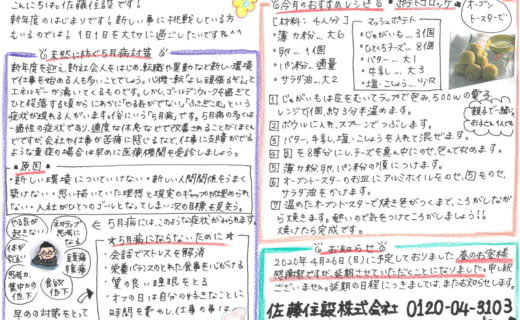 こんにちは！佐藤住設です！
新年度のはじまりです！新しい事に挑戦している方
もいるのでは！1日1日を大切に過ごしたいですね^^
未然に防ぐ5月病対策
新年度を迎え、新社会人をはじめ、転職や異動など新しい環境
で仕事を始める人も多いことでしょう。
エネルギーが満ちてくるものです。しかし、ゴールデンウィークを過ぎて
ひと段落する頃から「にわかに「やる気がでない」「ふさぎこむ」という
症状が現れる人がいます。俗にいう「5月病」です。5月病の多くは
一過性の症状であり、適度な休息などで改善されることがほとん
どですが、会社や仕事が苦痛に感じるなど、仕事に支障がでる
ような重症の場合は早めに医療機関を受診しましょう。
原因
・新しい環境についていけない・新しい人間関係をうまく
築けない・思い描いていた理想と現実のギャップが埋められ
ない・入社がひとつのゴールとなってしまい次の目標を見失う。
やる気が
起きない
ネガティブ
思考になる
体が
だるい
頭痛
腹痛
思考力、
集中力の
低下
食欲の
低下
5月病には、このような症状がみられます。
☆5月病にならないために☆
・会話でストレスを解消
・栄養バランスのとれた食事を心がける
・質の良い睡眠をとる
・オフの日は自分の好きなことに
時間を費やし、仕事の事は
早めの対策をとって
今月のおすすめレシピ
ポテトコロッケ
オーブン
トースターで
[材料：4人分]
・薄力粉…大6
・卵…1個
・パン粉…適量
・サラダ油…大2
マッシュポテト
・じゃがいも…3個
・ひとくちチーズ…8個
・バター…大1
・牛乳…大3
・塩・こしょう…少々
①じゃがいもは皮をむいてラップで包み、500wの電子
レンジで1個、約3分半温めます。
②ボウルに入れ、スプーンでつぶします。
③バター、牛乳、塩・こしょうを入れて混ぜます。
④③を8等分にし、チーズを真ん中にのせ、包んで丸めます。
⑤薄力粉、卵、パン粉の順につけます。
⑥オーブントースターのお皿にアルミホイルをのせ、⑤をのせ、
サラダ油をかけます。
⑦温めたオーブントースターで焼き色がつくまで、ころがしながら
焼きます。熱いので気をつけてころがしましょう！！
焼けたら完成です。
お知らせ
2020年4月26日(日)に予定しておりました春のお客様
感謝祭ですが、延期させていただくことになりました。申し訳
ございません。延期の日程につきましてはまたお知らせ
佐藤住設株式会社 0120-04-3103